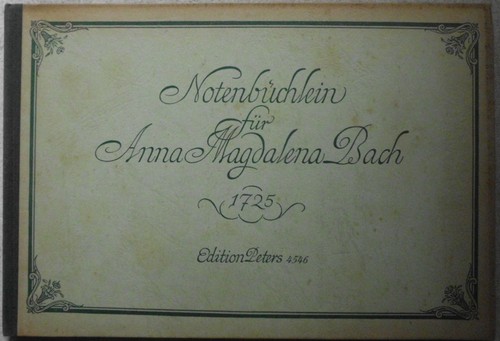 Notenbüchlein
für
Anna Magdalena Bach
1725
Edition Peters 4546